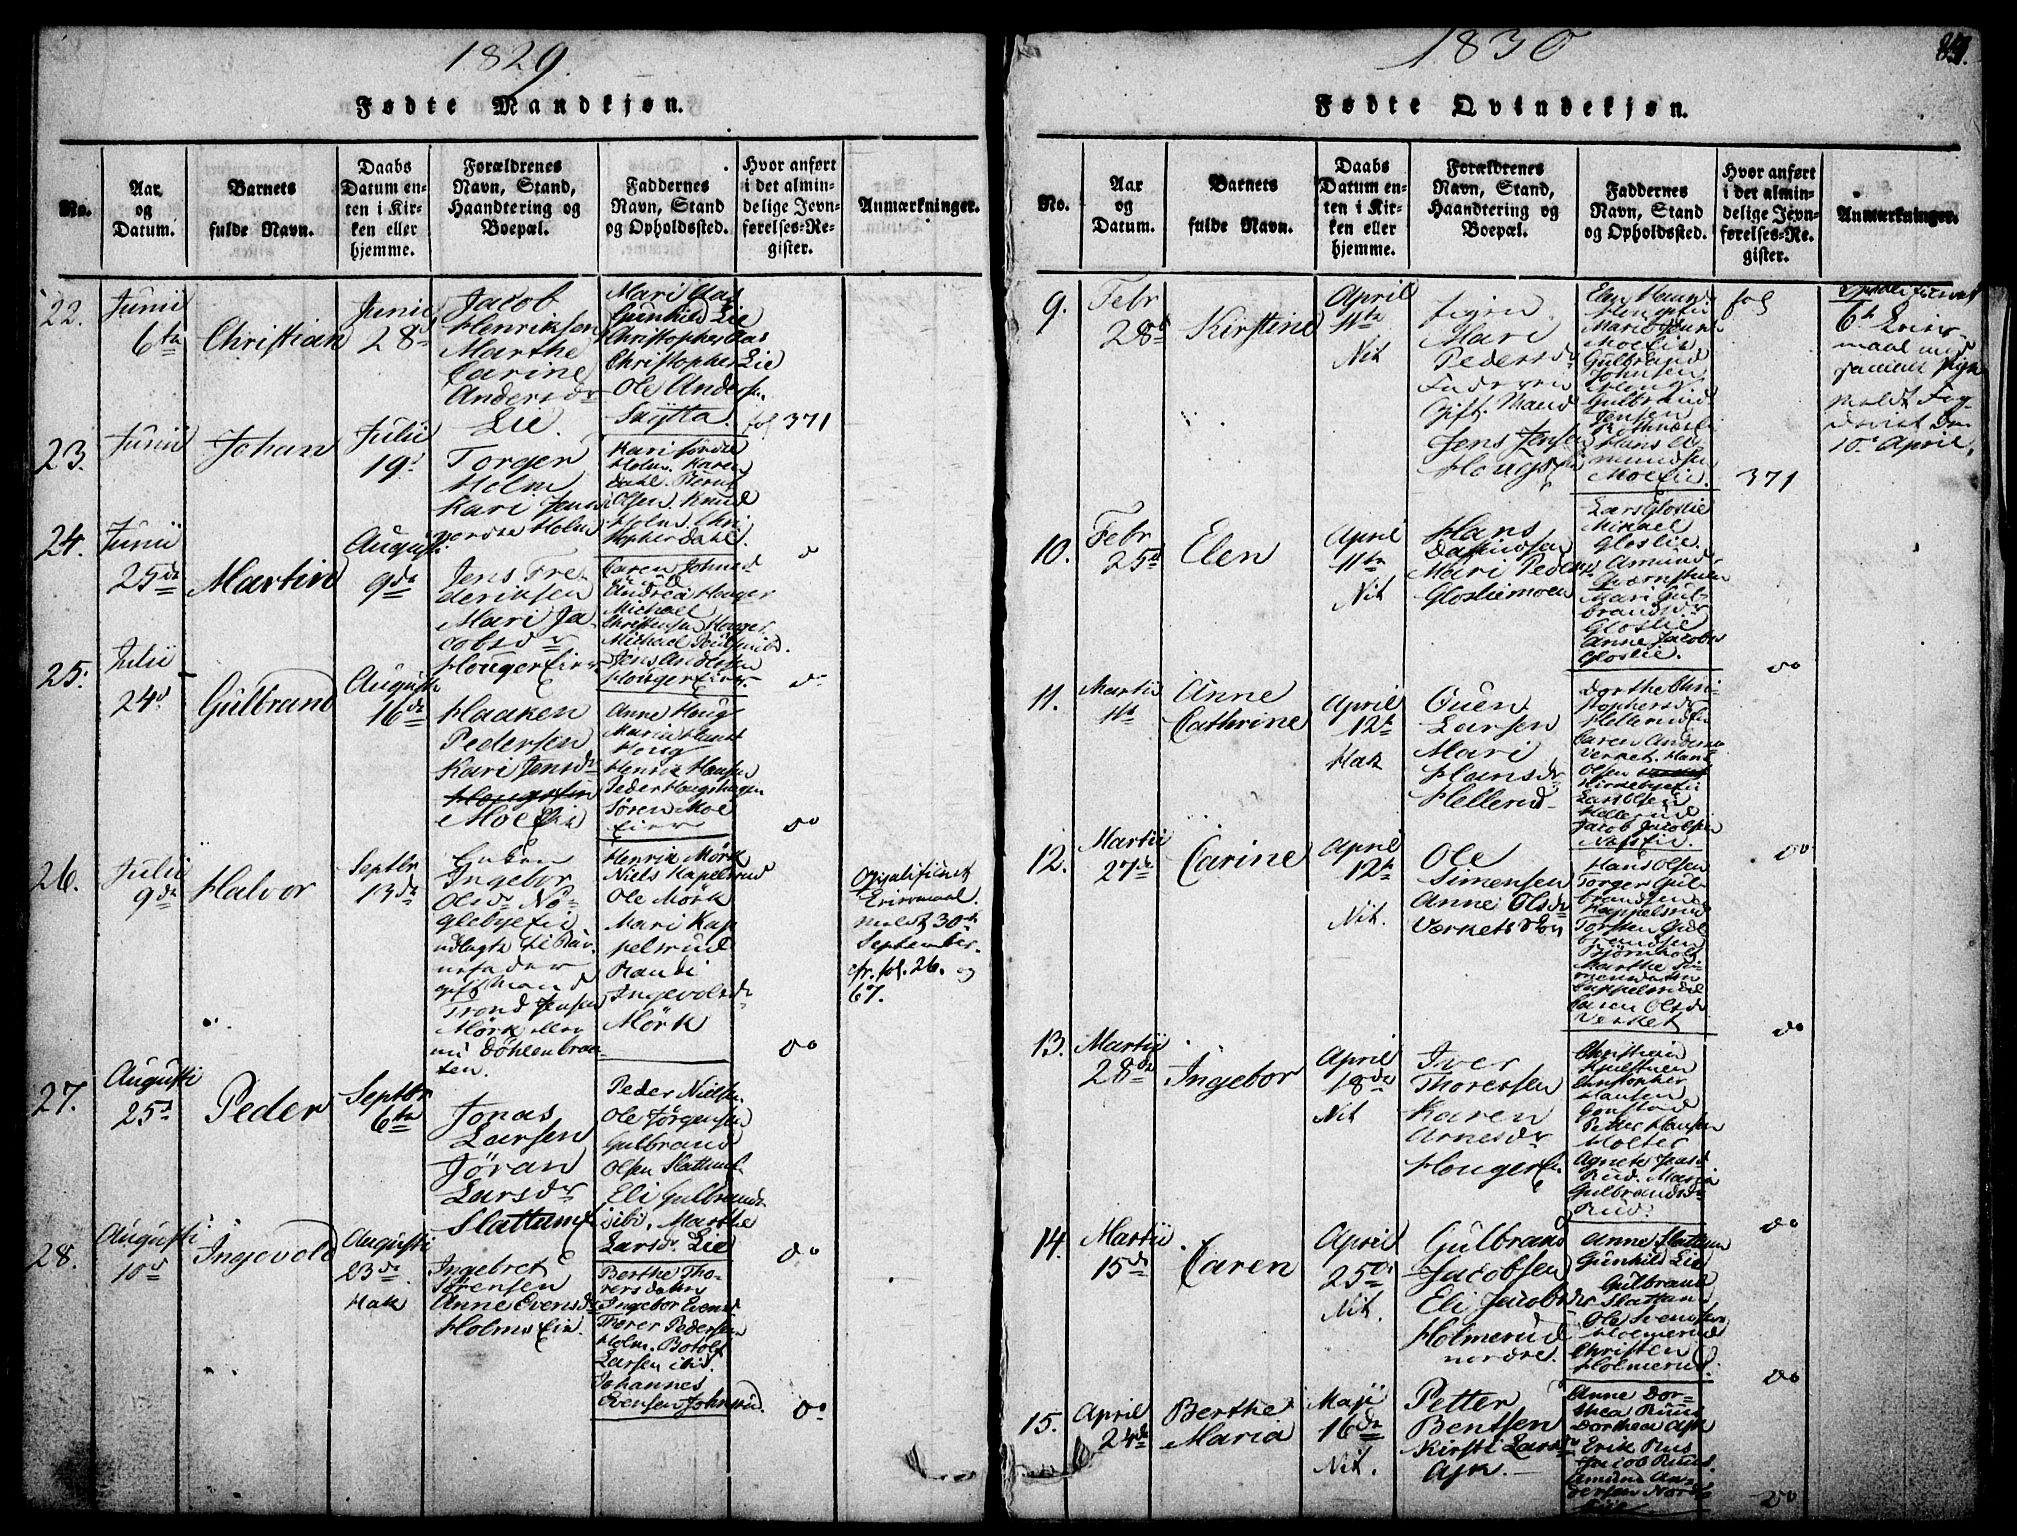 1829.
Fødte Mandkjøn.
No.
Aar og Datum.
Barnets fulde Navn.
Daabs Datum enten i Kirken eller hjemme.
Forældrenes Navn, Stand, Haandtering og Boepæl.
Faddernes Navn, Stand og Opholdssted.
Hvor anført i det almindelige Jevnførelses-Register.
Anmærkninger.
22.
Junii
6te
Christian
Junii
28de
Jacob
Henriksen
Marthe
Carine
Andersdr
Lie.
Mari Aas
Gunhild Lie
Christopher Aas
Christopher Lie
Ole Anders
Skÿtta.
fol 371
23.
Junii
Johan
Julii
19d
Torger
Holm
Kari Jens
nordre Holm
Kari søndre
Holm. Karen
Dahl. Bernt
Olsen. Knud
Holm. Chri
stopher Dahl.
do
24.
Junii
25de
Martin
Augusti
9de
Jens Fre
deriksen
Mari Ja
cobsdr
Hougereier
Caren Johnsd
Andrea Houger
Michael
Christensen Houger
Jens Andersen
Hougereier.
do
25.
Julii
24d
Gulbrand
Augusti
16de
Haaken
Pedersen
Kari Jensdr
Moeeie
Anne Houg
Maria Hans
Houg
Henrik Hansen
Peder Hougshagen
Søren Moe
eier
do
26.
Julii
9de
Halvor
Septbr
13de
Enken
Ingebor
Olsdr No
glebyeeie
udlagte til Bar
nefader
gift Mand
Trond Jensen
Mörk eller
nu Döhlenbraa
ten.
Henrik Mörk
Niels Kapelsrud
Ole Mörk
Mari Kap
pelsrud
Randi
Ingevolsdr
Mörk
do
Qvalificeret
Leiermaal
meldt 30te
September.
cfr. fol. 26. og
67.
27.
Augusti
25d
Peder
Septbr
6te
Jonas
Larsen
Jöran
Larsdr
Slattum
Peder Nielsen
Ole Jörgensen
Gulbrand
Olsen Slattum
Eli Gulbrands
ibi. Marthe
Larsdr Lie
do
28.
Augusti
10d
Ingevold
Augusti
23de
Hak
Ingebret
Sörensen
Anne Evensdr
Holmseie.
Berthe Tho
rersdatter
Ingebor Evensd
Thorer Pedersen
Holm. Botolf
Larsen ibid.
Johannes
Evensen Johnsrud.
do
1830
87.
Fødte Qvindekjøn.
No.
Aar og Datum.
Barnets fulde Navn.
Daabs Datum enten i Kirken eller hjemme.
Forældrenes Navn, Stand, Haandtering og Boepæl.
Faddernes Navn, Stand og Opholdssted.
Hvor anført i det almindelige Jevnførelses-Register.
Anmærkninger.
9.
Febr
28d
Kirstine
April
11te
Nit
Pigen
Mari
Pedersdr
Faderen
Gift Mand
Jens Jensen
Hougs
Gulbrand
Johnsen
Houg
Gulbrand
Jensen
Hans A
mundsen
Moeeie.
fol
371
6te Leier
maal med
samme Pige
meldt Fog
deriet den
10de April.
10.
Febr
25d
Elen
April
11te
Nit
Hans
Dafindsen
Mari Peders
Gloslimoen
Lars Gloslie
Mikkel
Gloslie.
Amund
Qværnstuen
Mari Gul
brandsdr
Gloslie
Anne Jacobs
Gloslie.
do
11.
Martii
11te
Anne
Cathrine
April
12te
Hak
Ouen
Larsen
Mari
Hansdr
Hellerud
Dorthe Chri
stophersdr
Hellerudeie
Caren Anders
Verket. Hans
Olsen
Kirkebyeeie
Lars Olsen
Hellerud
Jacob Jacobsen
do
12.
Martii
27de
Carine
April
12te
Nit.
Ole
Simensen
Anne Olsdr
Værkets Skov
Hans Olsen
Torger Gul
brandsen
Kappelsrud
Torsten Gul
brandsen
Björnholt
Marthe Si
mensdatter
Cappelsrud
Caren Olsdr
Verket
do
13.
Martii
28de
Ingebor
April
18de
Nit
Iver
Thoressen
Karen
Arnesdr
Houger
Christian
Christopher
Hansen
Petter Hansen
Holter
Agnete
Rud. Maria
Gulbrandsdr
Rud.
do
14.
Martii
15de
Caren
April
25de
Nit.
Gulbrand
Jacobsen
Eli Jacobsdr
Holmerud
nordre.
Anne Slattum
Gunhild Lie
Gulbrand
Slattum
Ole Svendsen
Holmerud
Christen
Holmerud.
do
15.
April
24de
Berthe
Maria
Maji
16de
Nit.
Petter
Bentsen
Kirsti Lars
Ask.
Anne Dor
thea Ruus
Dorthea Ask
Erik Rus
Jacob Ruus.
Amund An
dersen
do